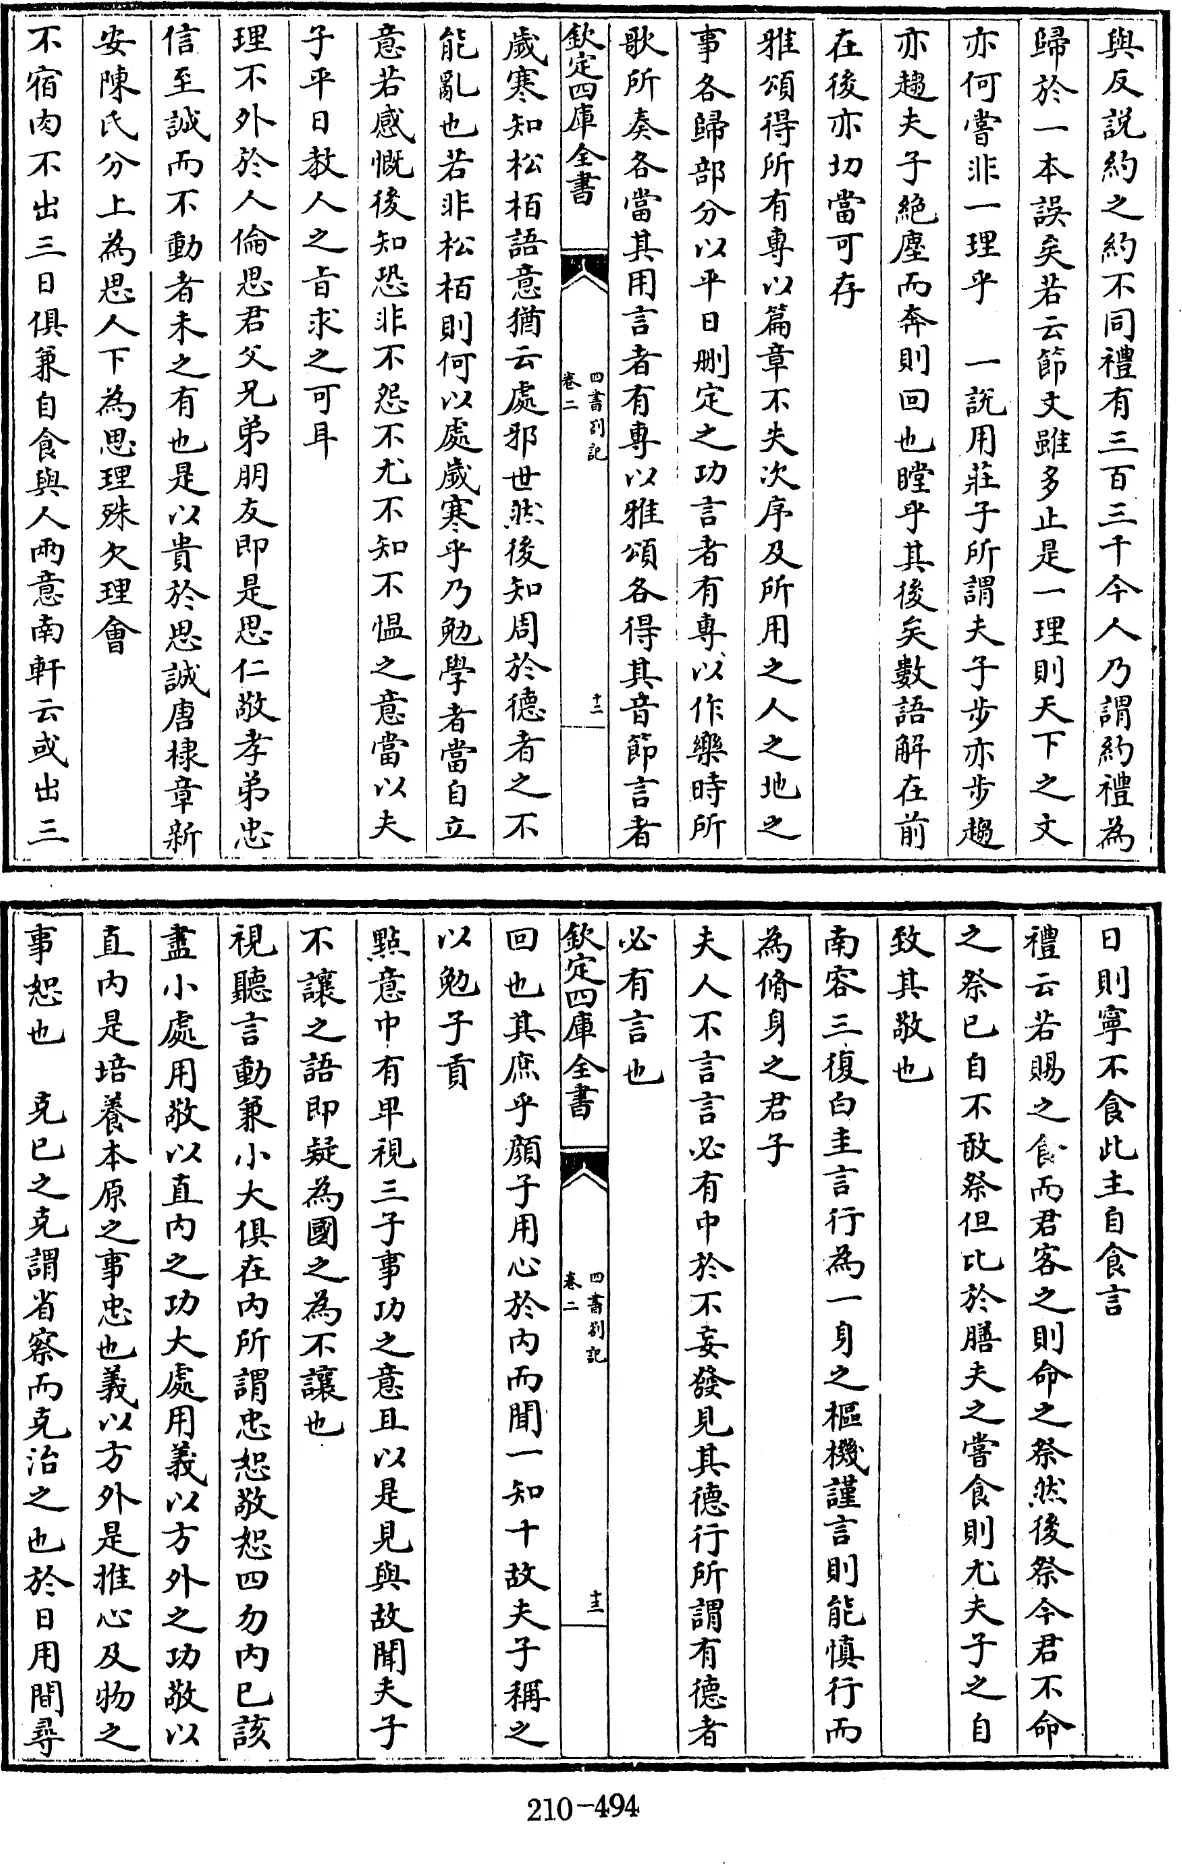 與反説約之約不同禮有三百三千今人乃謂約禮為
歸於一本誤矣若云節文雖多止是一理則天下之文
亦何嘗非一理乎　一説用莊子所謂夫子步亦步趨
亦趨夫子絶塵而奔則回也瞠乎其後矣數語解在前
在後亦切當可存
雅頌得所有專以篇章不失次序及所用之人之地之
事各歸部分以平日刪定之功言者有專以作樂時所
歌所奏各當其用言者有專以雅頌各得其音節言者
欽定四庫全書
四書劄記
卷二
十二
歲寒知松栢語意猶云處邪世然後知周於德者之不
能亂也若非松栢則何以處歲寒乎乃勉學者當自立
意若感慨後知恐非不怨不尤不知不愠之意當以夫
子平日教人之旨求之可耳
理不外於人倫思君父兄弟朋友即是思仁敬孝弟忠
信至誠而不動者未之有也是以貴於思誠唐棣章新
安陳氏分上為思人下為思理殊欠理會
不宿肉不出三日俱兼自食與人兩意南軒云或出三
日則寧不食此主自食言
禮云若賜之食而君客之則命之祭然後祭今君不命
之祭已自不敢祭但比於膳夫之嘗食則尤夫子之自
致其敬也
南容三復白圭言行為一身之樞機謹言則能慎行而
為脩身之君子
夫人不言言必有中於不妄發見其德行所謂有德者
必有言也
欽定四庫全書
四書劄記
卷二
十三
回也其庶乎顔子用心於内而聞一知十故夫子稱之
以勉子貢
點意中有卑視三子事功之意且以是見與故聞夫子
不讓之語即疑為國之為不讓也
視聽言動兼小大俱在内所謂忠恕敬恕四勿内已該
盡小處用敬以直内之功大處用義以方外之功敬以
直内是培養本原之事忠也義以方外是推心及物之
事恕也　克已之克謂省察而克治之也於日用間尋
210-494